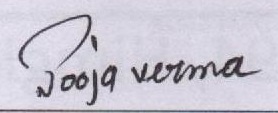 Pooja verma